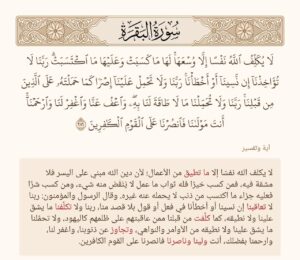 سُورَةُ البَقَرَةِ
لَا يُكَلِّفُ اللَّهُ نَفْسًا إِلَّا وُسْعَهَا لَهَا مَا كَسَبَتْ وَعَلَيْهَا مَا اكْتَسَبَتْ رَبَّنَا لَا
تُؤَاخِذْنَا إِن نَّسِينَا أَوْ أَخْطَأْنَا رَبَّنَا وَلَا تَحْمِلْ عَلَيْنَا إِصْرًا كَمَا حَمَلْتَهُ عَلَى الَّذِينَ
مِن قَبْلِنَا رَبَّنَا وَلَا تُحَمِّلْنَا مَا لَا طَاقَةَ لَنَا بِهِ وَاعْفُ عَنَّا وَاغْفِرْ لَنَا وَارْحَمْنَا
أَنتَ مَوْلَانَا فَانصُرْنَا عَلَى الْقَوْمِ الْكَافِرِينَ ٢٨٦
آية وتفسير
لا يكلف الله نفسًا إلا ما تطيق من الأعمال؛ لأن دين الله مبني على اليسر فلا
مشقة فيه، فمن كسب خيرًا فله ثواب ما عمل لا يُنقَص منه شيء، ومن كسب شرًّا
فعليه جزاء ما اكتسب من ذنب لا يحمله عنه غيره. وقال الرسول والمؤمنون: ربنا
لا تعاقبنا إن نسينا أو أخطأنا في فعل أو قول بلا قصد منا، ربنا ولا تكلِّفنا ما يشق
علينا ولا نطيقه، كما كلَّفت من قبلنا ممن عاقبتهم على ظلمهم كاليهود، ولا تحملنا
ما يشق علينا ولا نطيقه من الأوامر والنواهي، وتجاوز عن ذنوبنا، واغفر لنا،
وارحمنا بفضلك، أنت ولينا وناصرنا فانصرنا على القوم الكافرين.